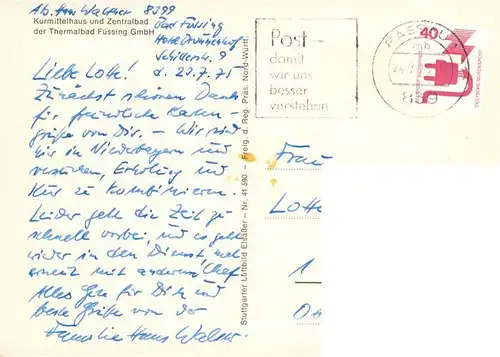 Ab. Hans Walser 8399
Kurmittelhaus und Zentralbad
der Thermalbad Füssing GmbH
Bad Füssing
Schillerstr. 9
d. 23.7.75
Liebe Lotte!
Zunächst schönen Dank
für freundliche Karten-
grüße von Dir. – Wir sind
hier in Niederbayern und
versuchen, Erholung und
Kur zu kombinieren.
Leider geht die Zeit zu
schnell vorbei, und es geht
wieder in den Dienst,
erneut mit anderem Chef
Alles Gute für Dich und
beste Grüße von der
Familie Hans Walser
Stuttgarter Luftbild Elsäßer – Nr. 41 590 – Freig. d. Reg. Präs. Nord-Württ.
Post –
damit
wir uns
besser
verstehen
PASSAU
mb
40
DEUTSCHE BUNDESPOST
Frau
Lotte
1